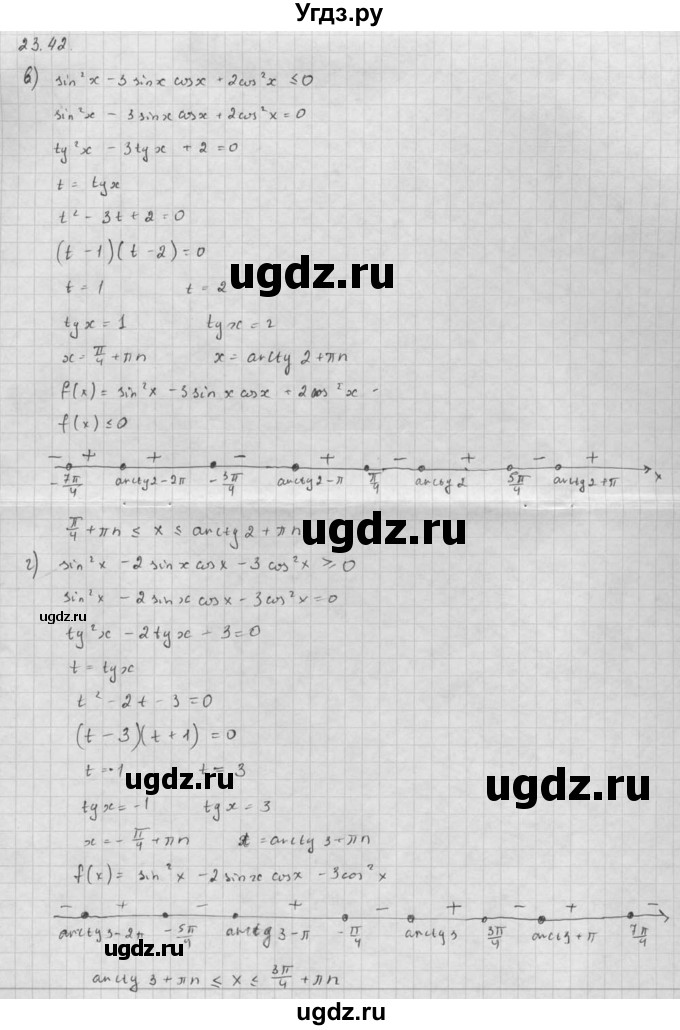 Угдз.ру
23.42.
в) sin²x - 3 sin x cos x + 2cos²x ≤ 0
sin²x - 3 sin x cos x + 2cos²x = 0
tg²x - 3tg x + 2 = 0
t = tg x
t² - 3t + 2 = 0
(t - 1)(t - 2) = 0
ugdz.ru
t = 1 t = 2
tg x = 1 tg x = 2
x = π/4 + πn x = arctg 2 + πn
f(x) = sin²x - 3 sin x cos x + 2cos²x -
f(x) ≤ 0
- + + - + - + - +
-7π/4 arctg2-2π -3π/4 arctg2-π π/4 arctg2 5π/4 arctg2+π x
π/4 + πn ≤ x ≤ arctg 2 + πn
ugdz.ru
г) sin²x - 2 sin x cos x - 3cos²x ≥ 0
sin²x - 2 sin x cos x - 3cos²x = 0
ugdz.ru
tg²x - 2tg x - 3 = 0
t = tg x
t² - 2t - 3 = 0
(t - 3)(t + 1) = 0
t = -1 t = 3
ugdz.ru
ugdz.ru
tg x = -1 tg x = 3
x = -π/4 + πn x = arctg 3 + πn
f(x) = sin²x - 2 sin x cos x - 3cos²x
- + - + - + - + -
arctg3-2π -5π/4 arctg 3-π -π/4 arctg3 3π/4 arctg3+π 7π/4
arctg 3 + πn ≤ x ≤ 3π/4 + πn
ugdz.ru